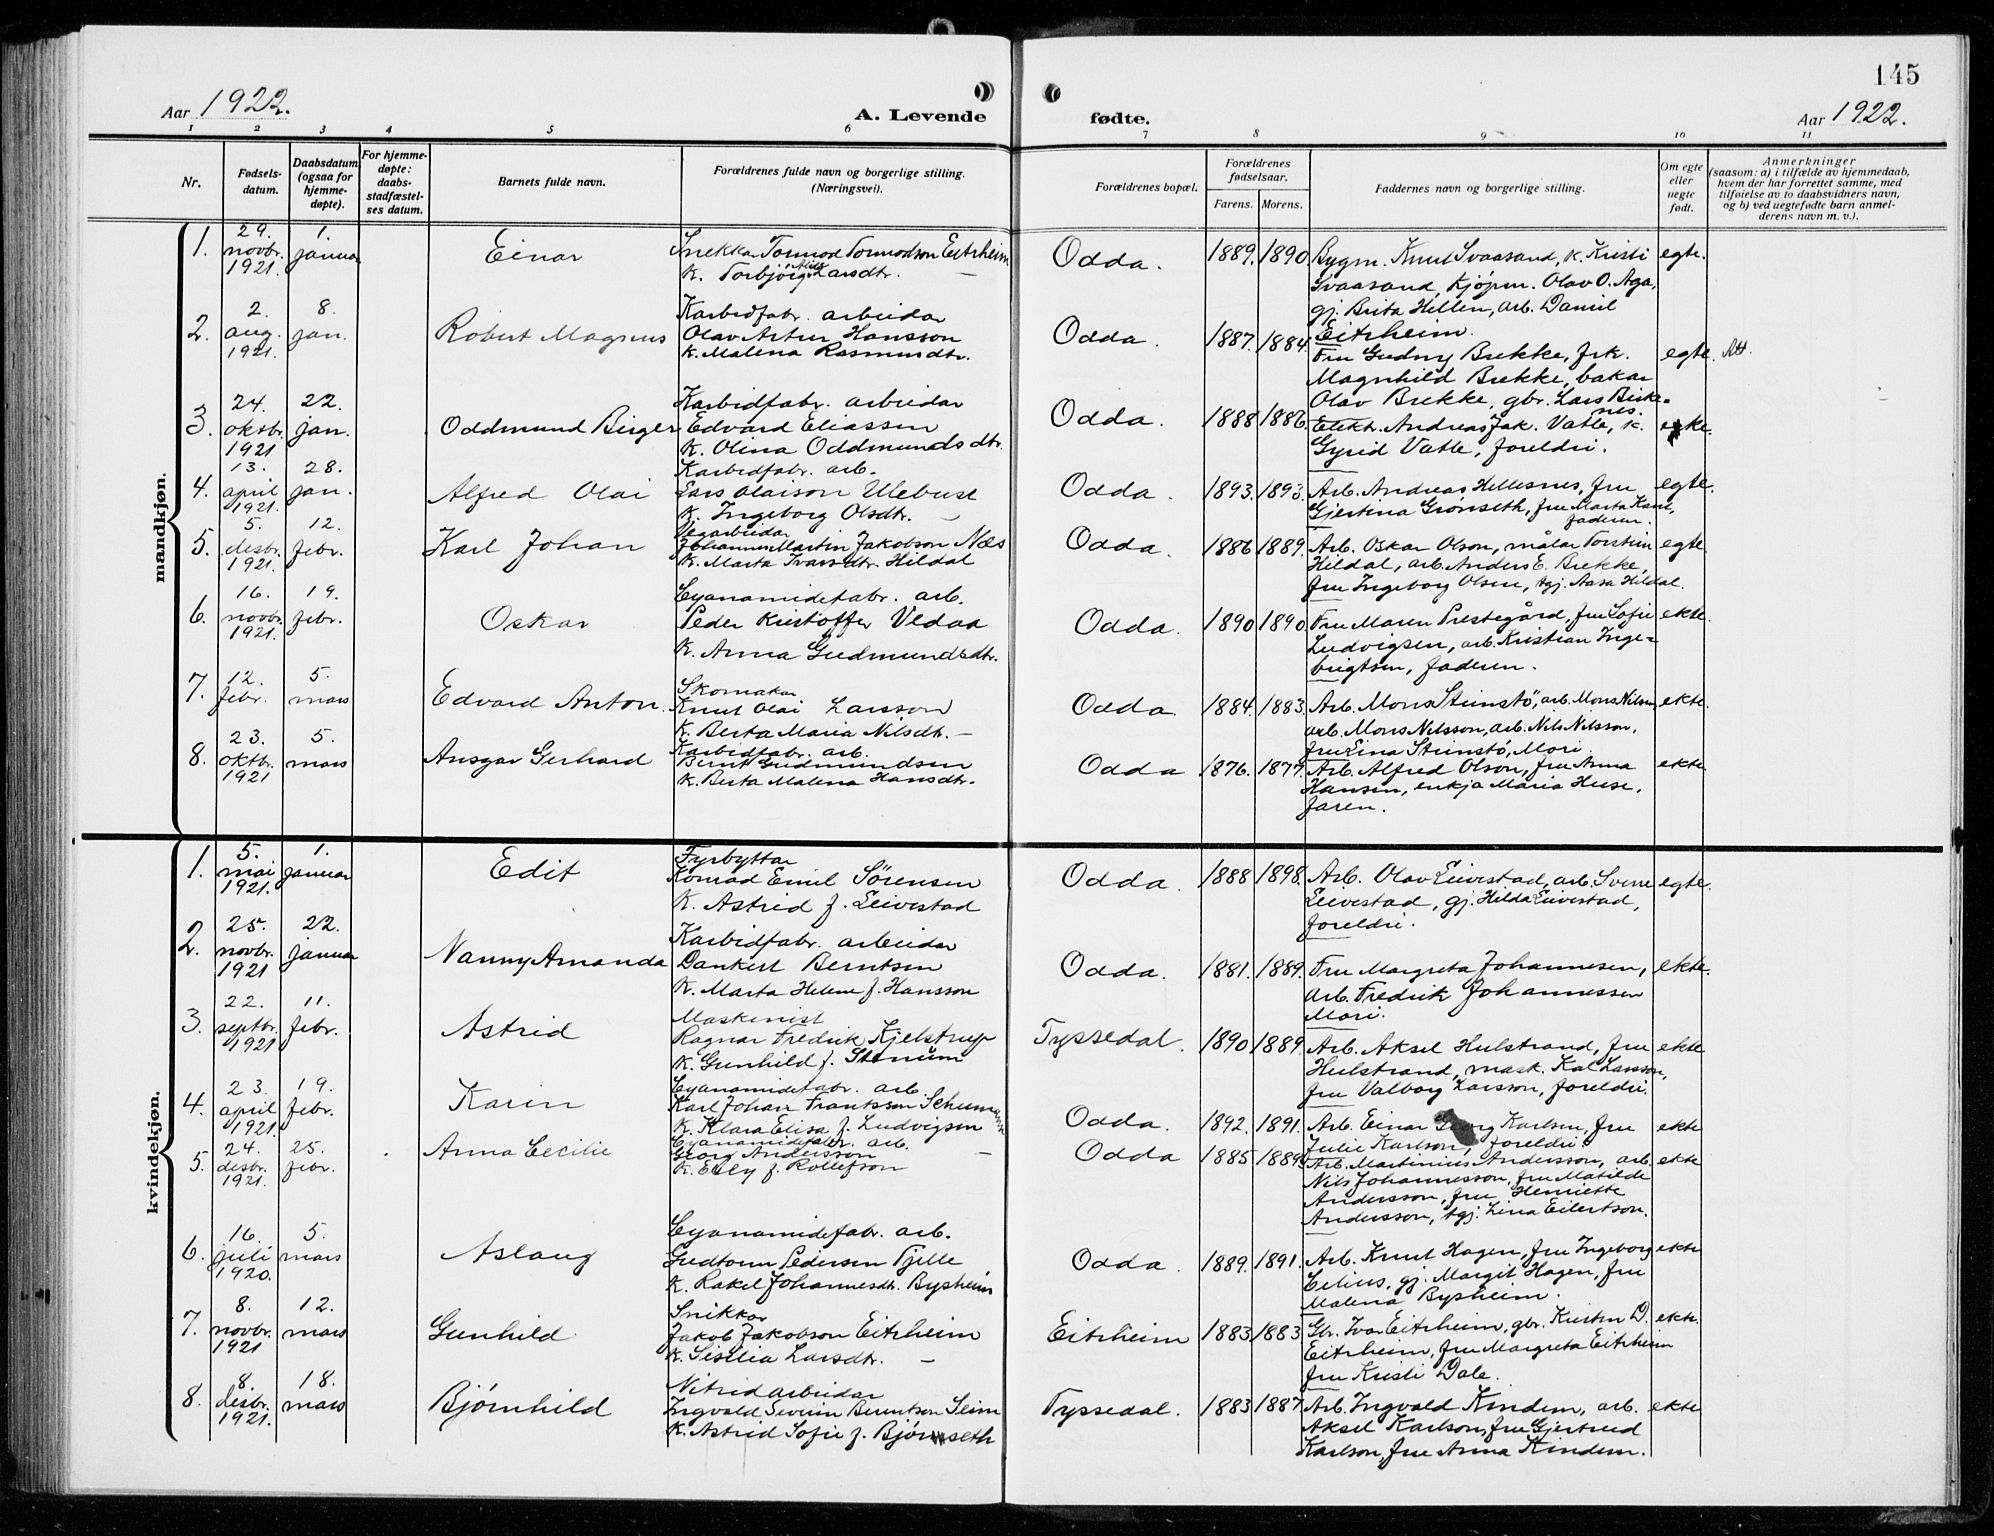 145
Aar 1922.
A. Levende fødte.
Aar 1922.
1 2 3 4 5 6 7 8 9 10 11
Nr.
Fødsels-
datum.
Daabsdatum
(ogsaa for
hjemme-
døpte).
For hjemme-
døpte:
daabs-
stadfæstel-
ses datum.
Barnets fulde navn.
Forældrenes fulde navn og borgerlige stilling.
(Næringsvei).
Forældrenes bopæl.
Forældrenes
fødselsaar.
Farens. Morens.
Faddernes navn og borgerlige stilling.
Om egte
eller
uegte
født.
Anmerkninger
(saasom: a) i tilfælde av hjemmedaab,
hvem der har forrettet samme, med
tilføielse av to daabsvidners navn,
og b) ved uegtefødte barn anmel-
derens navn m. v.).
mandkjøn.
1.
29.
novbr.
1921.
1.
januar
Einar
Snekkar Tormod Tormodson Eitrheim
k. Torbjørg Alida Larsdtr. —
Odda.
1889. 1890.
Bygm. Knut Svaasand, k. Kristi
Svaasand, kjøpm. Olav O. Aga,
gj. Brita Hillen, arb. Daniel
Eitrheim.
egte.
2.
2.
aug.
1921.
8.
jan.
Robert Magnus
Karbidfabr. arbeidar
Olav Artur Hansson
k. Malena Rasmundtr.
Odda.
1887. 1884.
Fru Gudny Brekke, frk.
Magnhild Brekke, bakar
Olav Brekke, gbr. Lars Birke-
nes.
egte. Att.
3.
24.
oktbr.
1921
22.
jan.
Oddmund Birger
Karbidfabr. arbeidar
Edvard Eliassen
k. Olina Oddmundsdtr.
Odda.
1888 1886.
Elektr. Andreas Jak. Vatle, k.
Gyrid Vatle, foreldri.
ekte.
4.
13.
april
1921.
28.
jan.
Alfred Olai
Karbidfabr. arb.
Lars Olaison Ulebust
k. Ingeborg Olsdtr. —
Odda.
1893. 1893.
Arb. Andreas Hellesnes, fru
Gjertina Grønseth, fru Marta Kam,
faderen.
egte.
5.
5.
desbr.
1921.
12.
febr.
Karl Johan
Vegarbeidar
Johannes Martin Jakobson Næs
k. Marta Ivarsdtr. Hildal
Odda.
1886 1889.
Arb. Oskar Olson, målar Torstein
Hildal, arb. Anders E. Brekke,
fru Ingeborg Olsen, tgj. Aasa Hildal.
egte.
6.
16.
novbr.
1921.
19.
febr.
Oskar
Cyanamidefabr. arb.
Peder Kristoffer Vedaa
k. Anna Gudmundsdtr.
Odda.
1890 1890.
Fru Maren Prestegård, fru Sofie
Ludvigsen, arb. Kristian Inge-
brigtsen, faderen.
ekte.
7.
12.
febr.
5.
mars
Edvard Anton.
Skomakar
Knut Olai Larsson
k. Berta Maria Nilsdtr. —
Odda
1884. 1883.
Arb. Mons Steinstø, arb. Mons Nilsen,
arb. Mons Nilsson, arb. Nils Nilsson,
fru Eina Steinstø, Mori.
ekte.
8.
23.
oktbr.
1921
5.
mars
Ansgar Gerhard
Karbidfabr. arb.
Bernt Gudmundsen
k. Berta Malena Hansdtr.
Odda
1876. 1877.
Arb. Alfred Olson, fru Anna
Hansen, enkja Maria Huse,
faren.
ekte.
kvindekjøn.
1.
5.
mai
1921.
1.
januar
Edit
Fyrbyttar
Konrad Emil Sørensen
k. Astrid f. Eivestad
Odda.
1888 1898.
Arb. Olav Eivestad, arb. Sverre
Eivestad, gj. Hilda Eivestad,
foreldri.
egte.
2.
25.
novbr.
1921
22.
januar
Nanny Amanda
Karbidfabr. arbeidar
Dankert Berntsen
k. Marta Helene f. Hansson
Odda.
1881. 1889.
Fru Margreta Johannesen,
arb. Fredrik Johannessen
Mori.
ekte.
3.
22.
septbr.
1921
11.
febr.
Astrid
Maskinist
Ragnar Fredrik Kjelstrup
k. Gunhild f. Stenum
Tyssedal.
1890 1889.
Arb. Aksel Hulstrand, fru
Hulstrand, mask. Kal Larsson,
fru Valborg Larsson, foreldri.
ekte
4.
23.
april
1921.
19.
febr.
Karin
Cyanamidefabr. arb.
Karl Johan Frantsson Schumann
k. Klara Elisa f. Ludvigsen
Odda.
1892. 1891.
Arb. Einar Georg Karlsen, fru
Julie Karlson, foreldri.
ekte
5.
24.
desbr.
1921.
25.
febr.
Anna Cecilie
Cyanamidefabr. arb.
Georg Andersson
k. Elly f. Rollefson —
Odda
1885 1889.
Arb. Martinius Andersson, arb.
Nils Johannesson, fru Matilde
Andersson, fru Henriette
Andersson, tgj. Lina Eilertson.
ekte
6.
16.
juli
1920.
5.
mars
Aslaug
Cyanamidefabr. arb.
Gudtorm Pedersen Tjelle
k. Rakel Johannesdtr. Bysheim
Odda.
1889. 1891.
Arb. Knut Hagen, fru Ingeborg
Cilius, gj. Margit Hagen, fru
Malena Bysheim.
ekte
7.
8.
novbr.
1921
12.
mars
Gunhild
Snikkar
Jakob Jakobson Eitrheim
k. Sisilia Larsdtr. —
Eitrheim
1883 1883
Gbr. Ivar Eitrheim, gbr. Kristen D.
Eitrheim, fru Margreta Eitrheim
fru Kristi Dale.
ekte.
8.
8.
desbr.
1921.
18.
mars
Bjørnhild
Nitridarbeidar
Ingvald Severin Berntson Seim
k. Astrid Sofie f. Bjørnseth
Tyssedal.
1883 1887
Arb. Ingvald Kindem, arb.
Aksel Karlson, fru Gjertrud
Karlson, fru Anna Kindem.
ekte